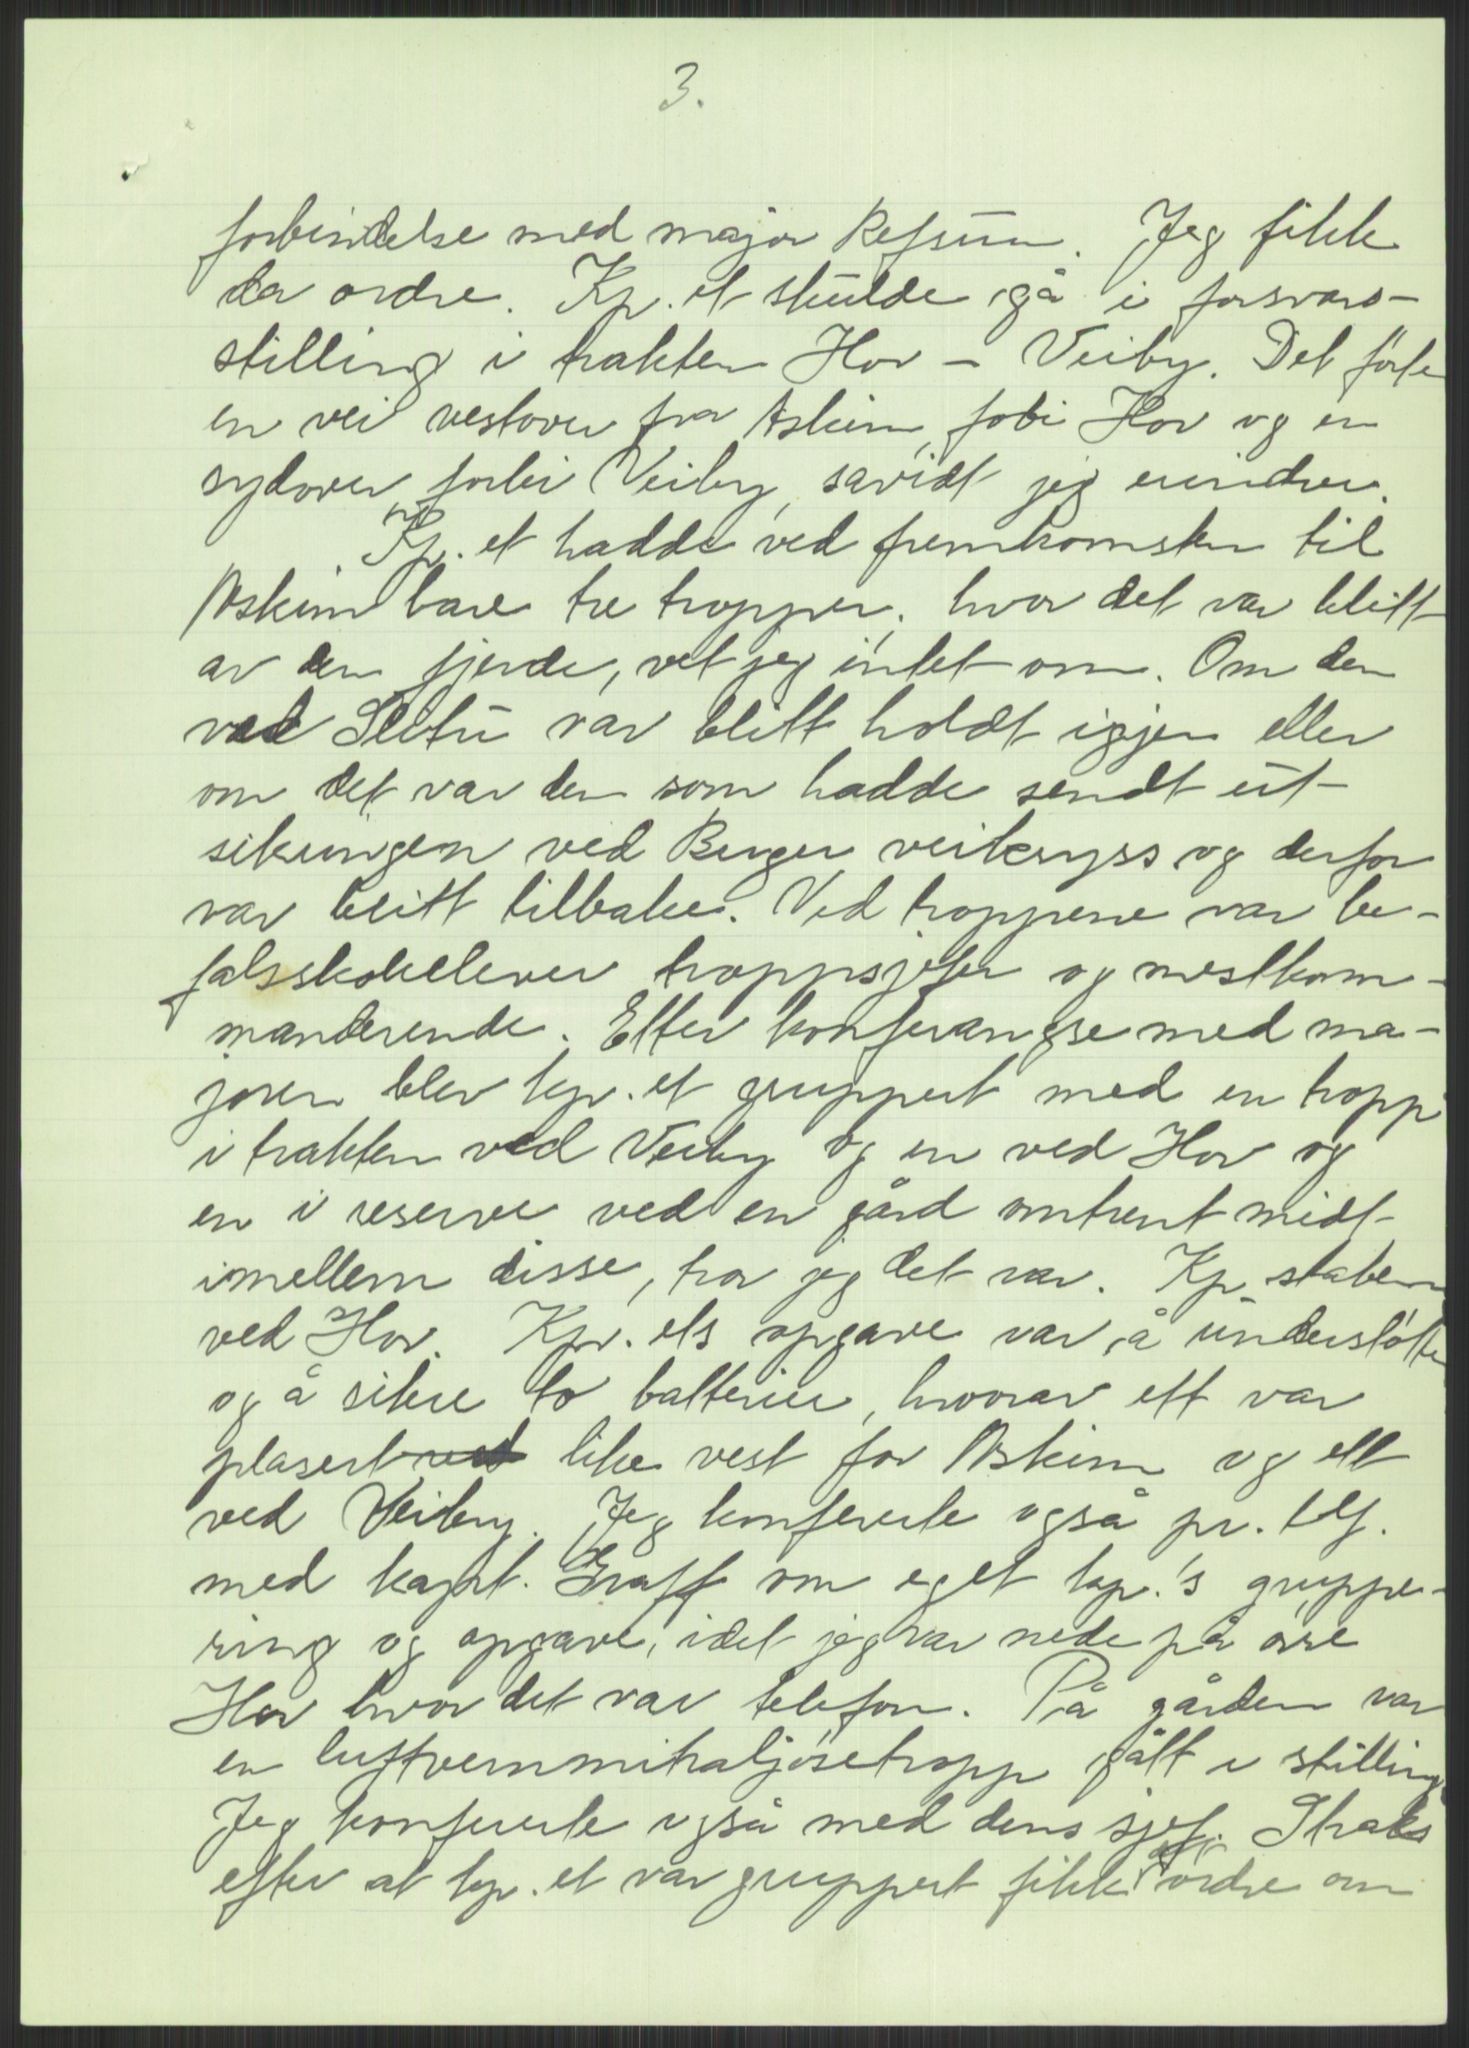 3.
forbindelse med major Refsum. Jeg fikk
da ordre. Kp. et skulde gå i forsvars-
stilling i trakten Hov – Veiby. Det førte
en vei vestover fra Askim, fobi Hov og en
sydover, forbi Veiby, såvidt jeg erindrer.
Kp. et hadde ved fremkomsten til
Askim bare tre tropper, hvor det var blitt
av den fjerde, vet jeg intet om. Om den
ved Slitu var blitt holdt igjen eller
om det var den som hadde sendt ut
sikringen ved Berger veikryss og derfor
var blitt tilbake. Ved troppene var be-
falsskoleelever troppsjefer og nestkom-
manderende. Efter konferangse med ma-
joren blev kp. et gruppert med en tropp
i trakten ved Veiby og en ved Hov og
en i reserve ved en gård omtrent midt
imellem disse, tror jeg det var. Kp. staben
ved Hov. Kp. ets opgave var å understøtte
og å sikre to batterier, hvorav ett var
plasert ved like vest for Askim og ett
ved Veiby. Jeg konfererte også pr. tlf.
med kapt. Graff om eget kp.'s gruppe-
ring og opgave, idet jeg var nede på øvre
Hov hvor det var telefon. På gården var
en luftvernmitraljøsetropp gått i stilling.
Jeg konfererte også med dens sjef. Straks
efter at kp. et var gruppert fikk ordre om